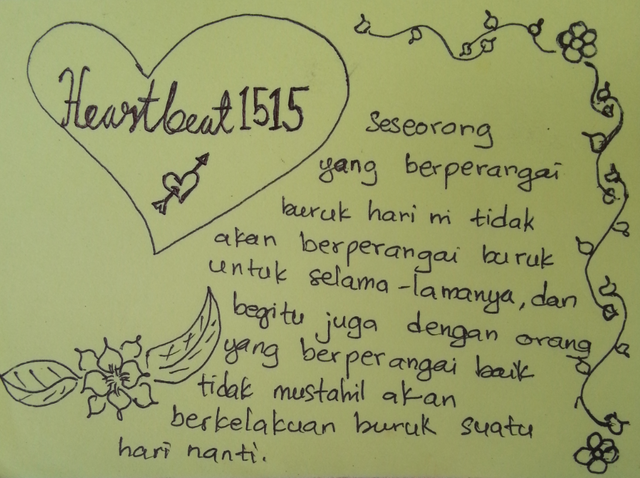 Heartbeat1515
seseorang
yang berperangai
buruk hari ni tidak
akan berperangai buruk
untuk selama-lamanya, dan
begitu juga dengan orang
yang berperangai baik
tidak mustahil akan
berkelakuan buruk suatu
hari nanti.